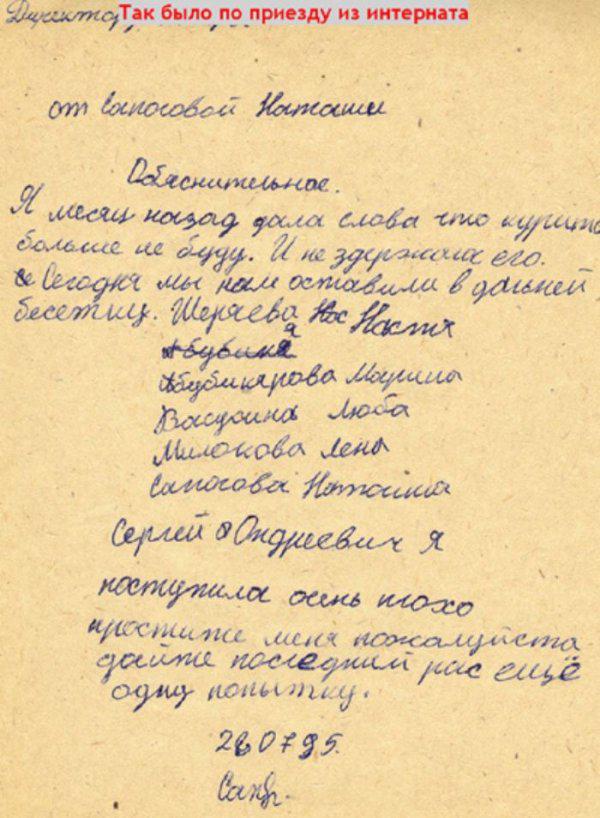 Так было по приезду из интерната
Директору
от Сапоговой Наташи
Обяснительное.
Я месяц назад дала слова что курить
больше не буду. И не здержала его.
Сегодня мы нам оставили в дальней
бесетки. Шеряева Нас Настя
Абубика
Абубикярова Марина
Васюина Люба
Милокова Лена
Сапогова Наташа
Сергей Ондреевич я
поступила осень плохо
простите меня пожалуйста
дайте последний рас ещё
одну попытку.
280795.